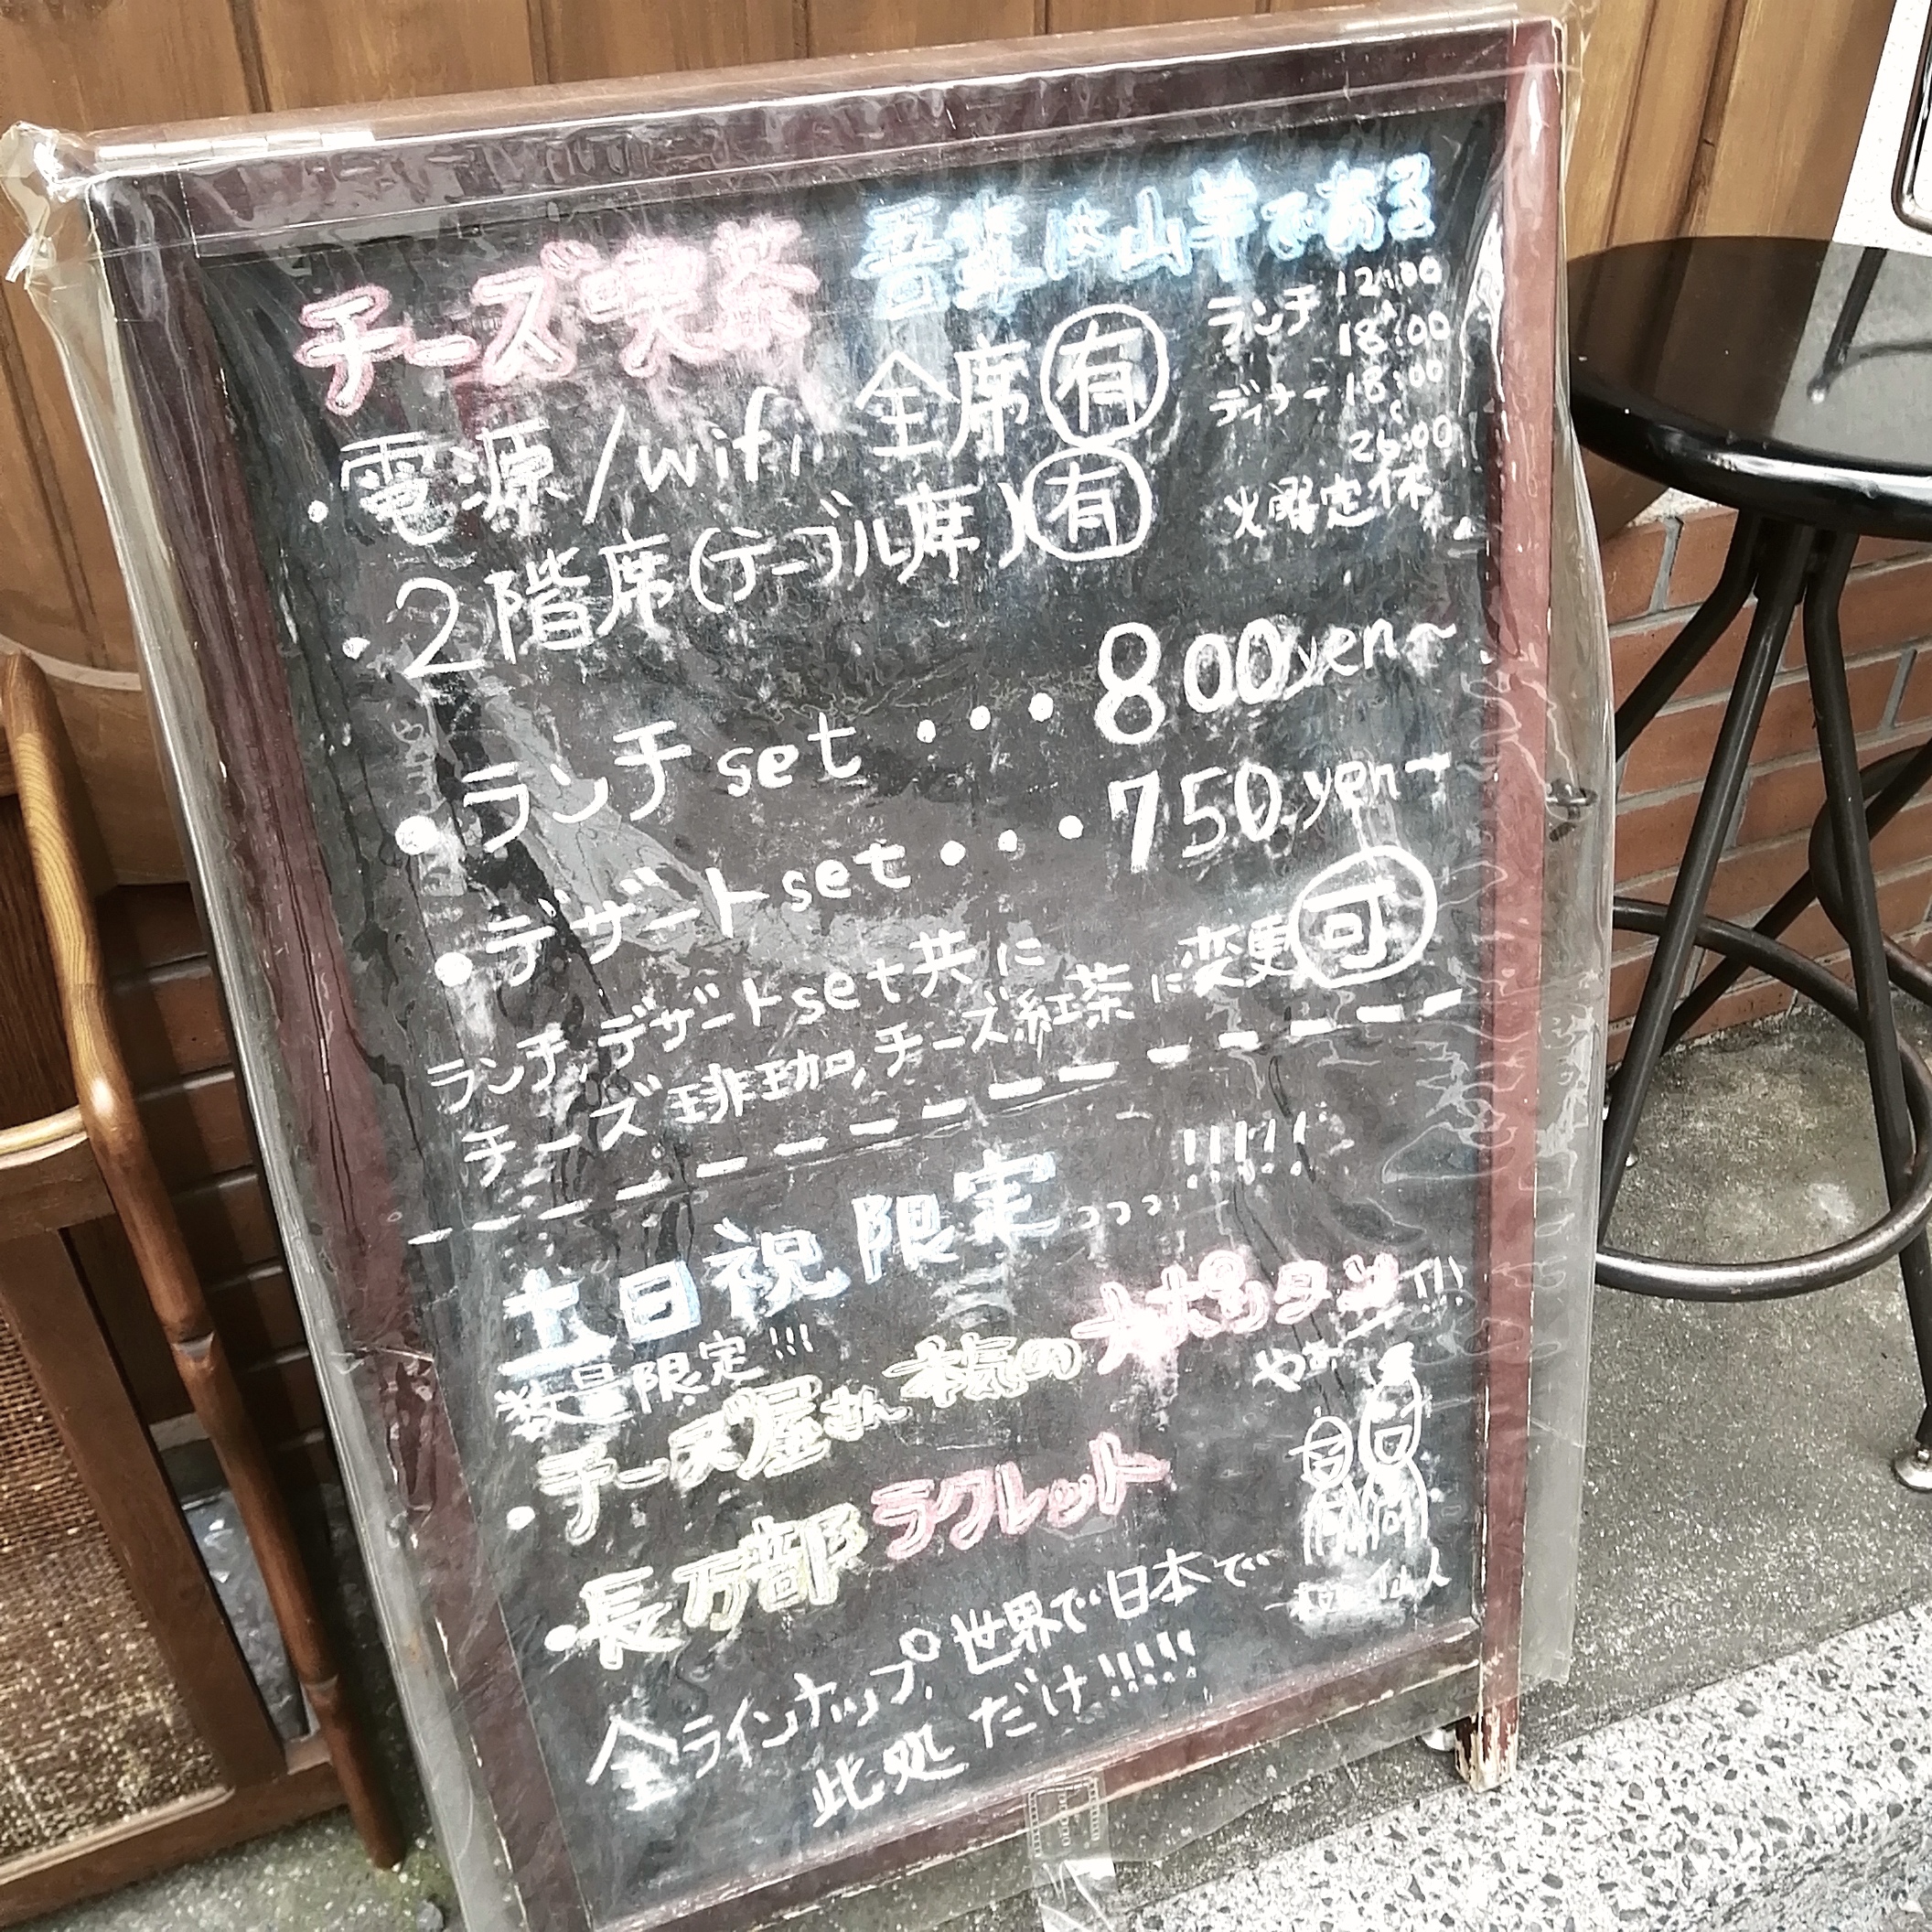 チーズ喫茶 吾輩は山羊である
ランチ 12:00
~
18:00
ディナー 18:00
~
26:00
火曜定休
・電源/wifi 全席㊒
・2階席(テーブル席)㊒
●ランチset・・・800yen~
●デザートset・・・750yen~
ランチ,デザートset共に
チーズ珈琲,チーズ紅茶に変更可
土日祝限定っっっ!!!!!
数量限定!!!
・チーズ屋さん本気のナポリタン!!!
・長万部ラクレット
やぁ
仙人
全ラインナップ世界で日本で
此処だけ!!!!!